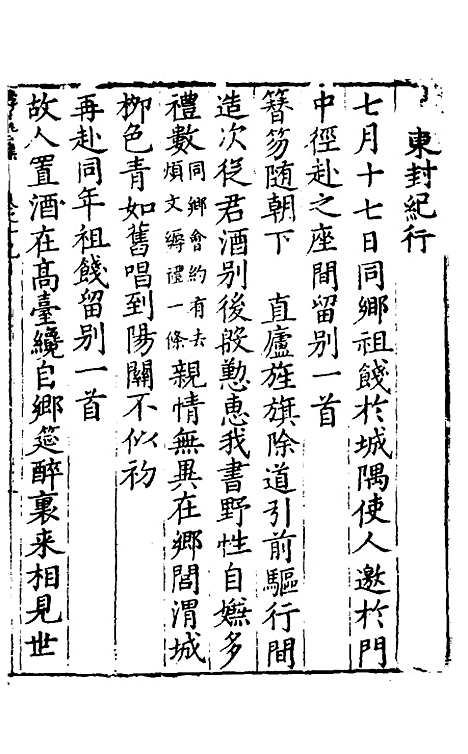 東封紀行
七月十七日同鄉祖餞於城隅使人邀於門
中徑赴之座間留别一首
簪笏随朝下直廬旌旗除道引前驅行間
造次從君酒别後殷懃惠我書野性自嫵多
禮數同鄉會約有去煩文縟禮一條親情無異在鄉閭渭城
柳色青如舊唱到陽關不似初
再赴同年祖餞留别一首
故人置酒在高臺纔自鄉筵醉裏来相見世